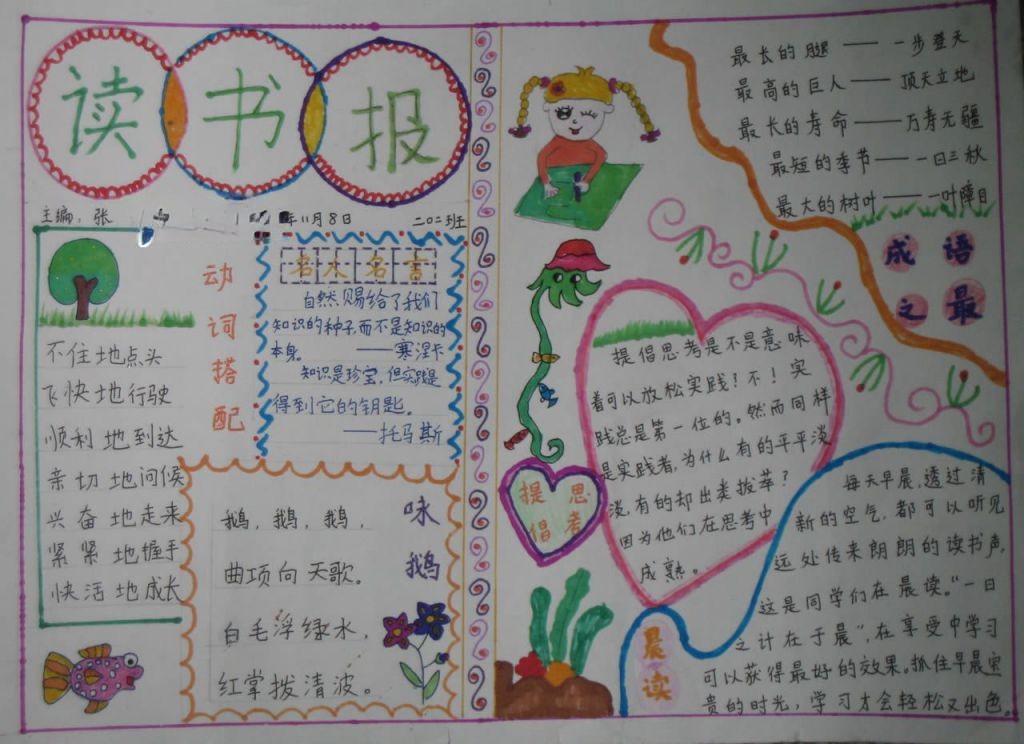 读书报
主编:张
年11月8日
二〇二班
动词搭配
不住地点头
飞快地行驶
顺利地到达
亲切地问候
兴奋地走来
紧紧地握手
快活地成长
名人名言
自然赐给了我们
知识的种子,而不是知识的
本身。——塞涅卡
知识是珍宝,但实践是
得到它的钥匙。
——托马斯
咏鹅
鹅,鹅,鹅,
曲项向天歌。
白毛浮绿水,
红掌拨清波。
最长的腿——一步登天
最高的巨人——顶天立地
最长的寿命——万寿无疆
最短的季节——一日三秋
最大的树叶——一叶障目
成语
之最
提倡思考
提倡思考是不是意味
着可以放松实践?不!实
践总是第一位的。然而同样
是实践者,为什么有的平平淡
淡,有的却出类拔萃?
因为他们在思考中
成熟。
晨读
每天早晨,透过清
新的空气,都可以听见
远处传来朗朗的读书声,
这是同学们在晨读。"一日
之计在于晨",在享受中学习
可以获得最好的效果。抓住早晨宝
贵的时光,学习才会轻松又出色。